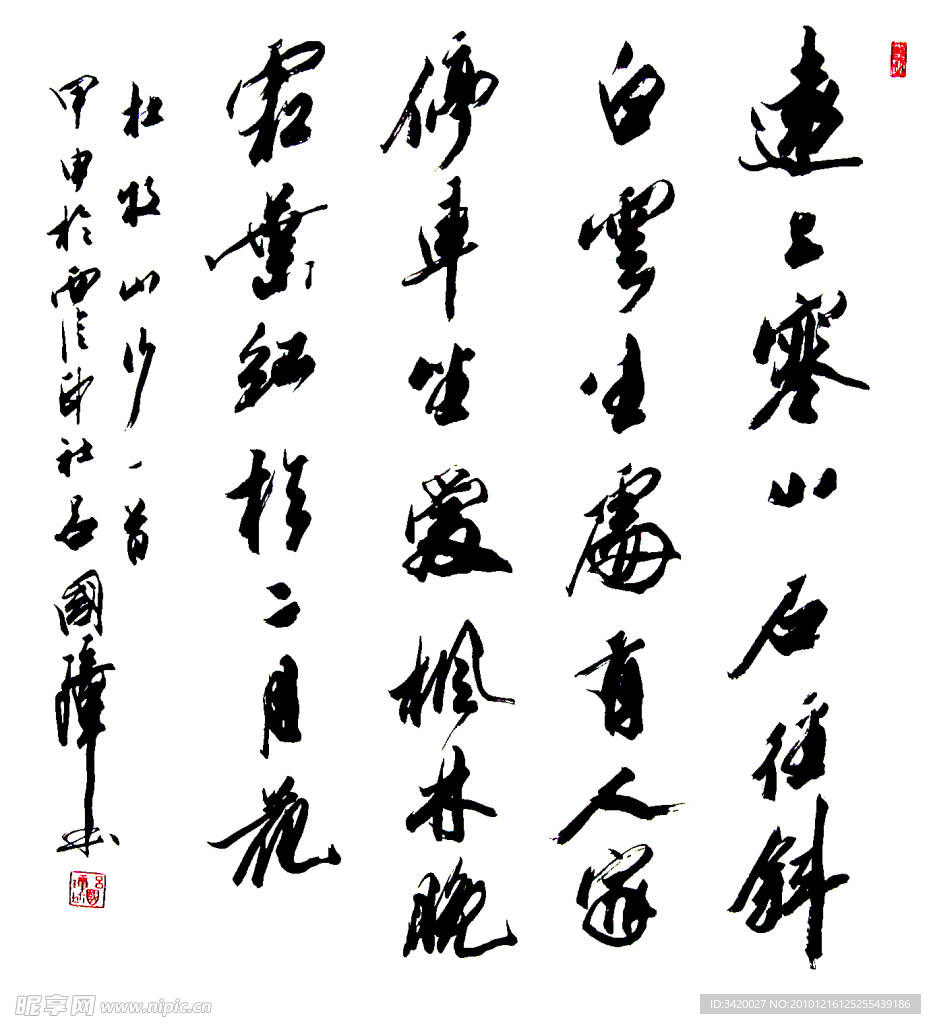 遠上寒山石径斜
白雲生處有人家
停車坐愛楓林晚
霜葉紅於二月花
杜牧山行一首
甲申於西泠印社呂國璋书
昵享网 www.nipic.cn
ID:3420027 NO:20101216125255439186